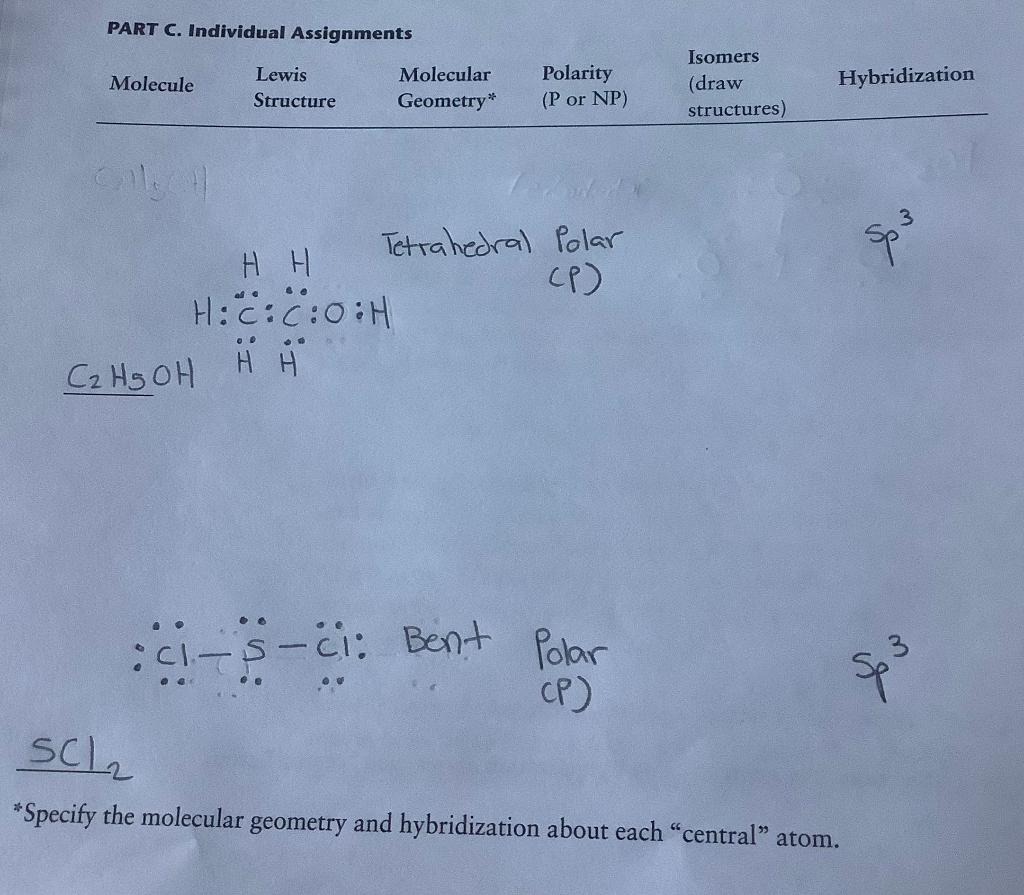 PART C. Individual Assignments
Molecule Lewis Structure Molecular Geometry* Polarity (P or NP) Isomers (draw structures) Hybridization
Tetrahedral Polar (P) Sp³
H H
H:C:C:O:H
H H
C₂H₅OH
:Cl–S–Cl: Bent Polar (P) Sp³
SCl₂
*Specify the molecular geometry and hybridization about each “central” atom.